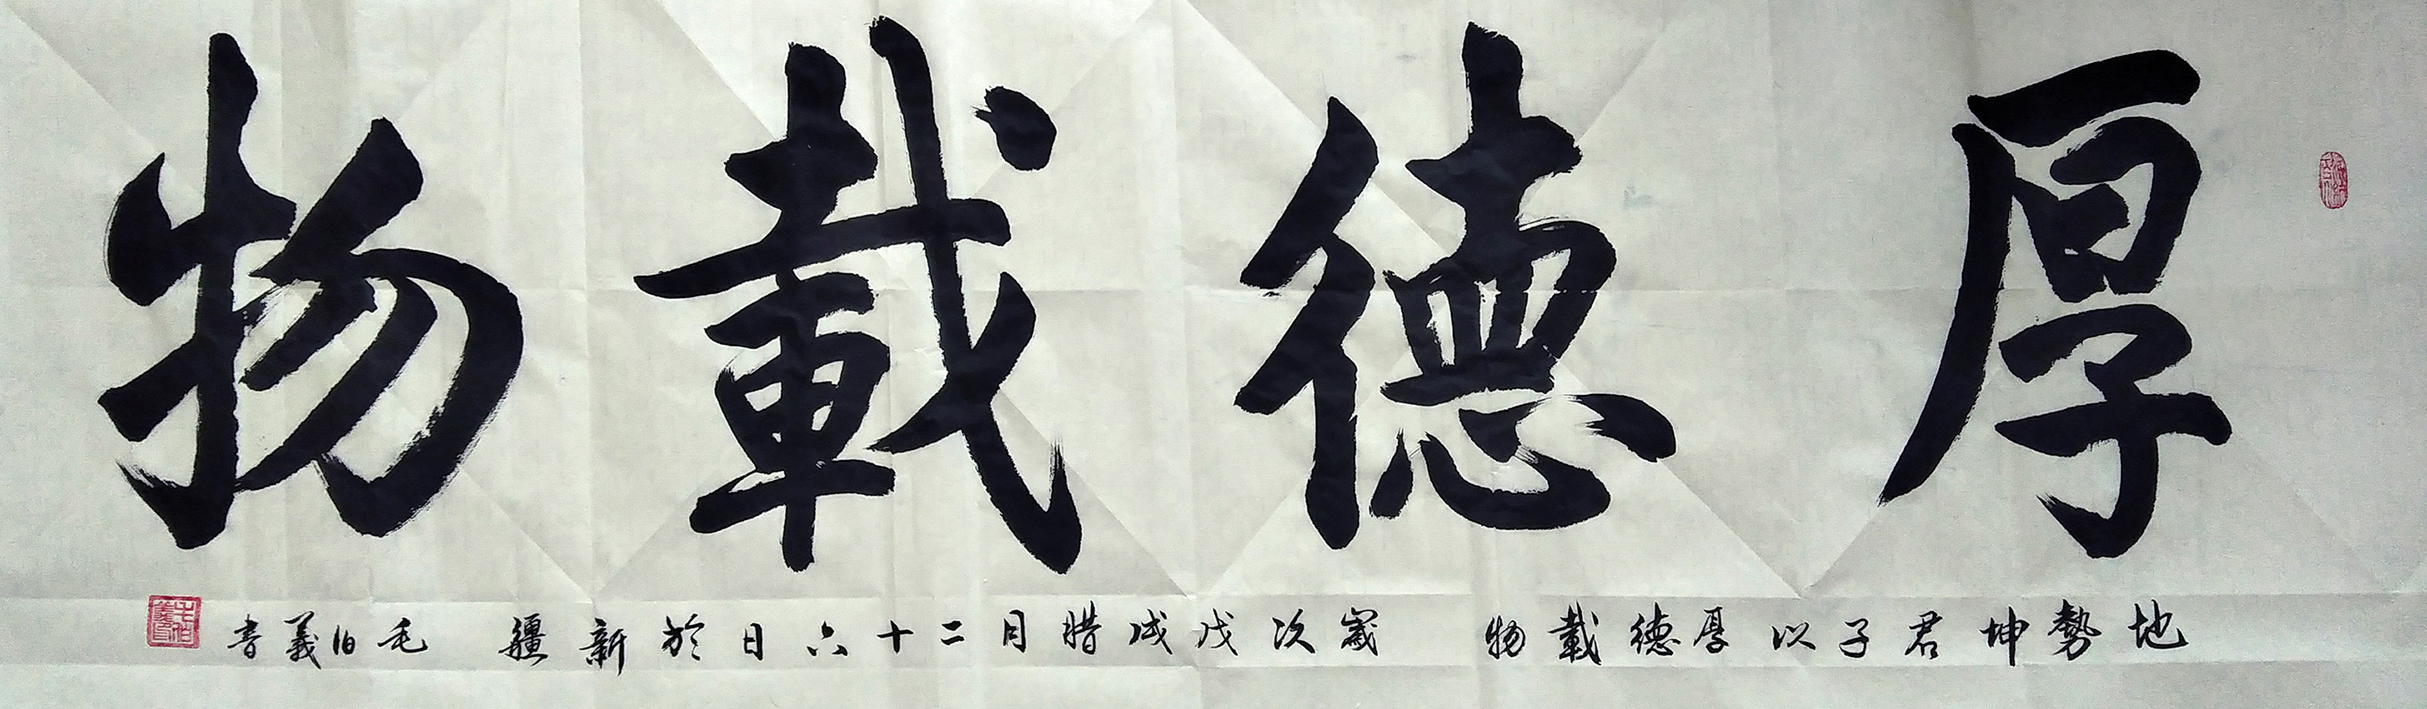 厚德載物
地勢坤君子以厚德載物 嵗次戊戌腊月二十六日於新疆 毛伯義書
毛伯義印